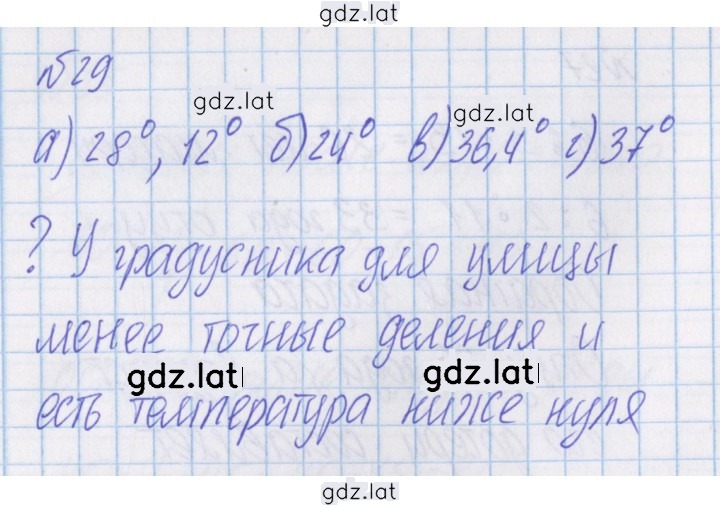 gdz.lat
№29
gdz.lat
gdz.lat
а) 28°, 12° б) 24° в) 36,4° г) 37°
? У градусника для улицы
менее точные деления и
gdz.lat
gdz.lat
есть температура ниже нуля
gdz.lat